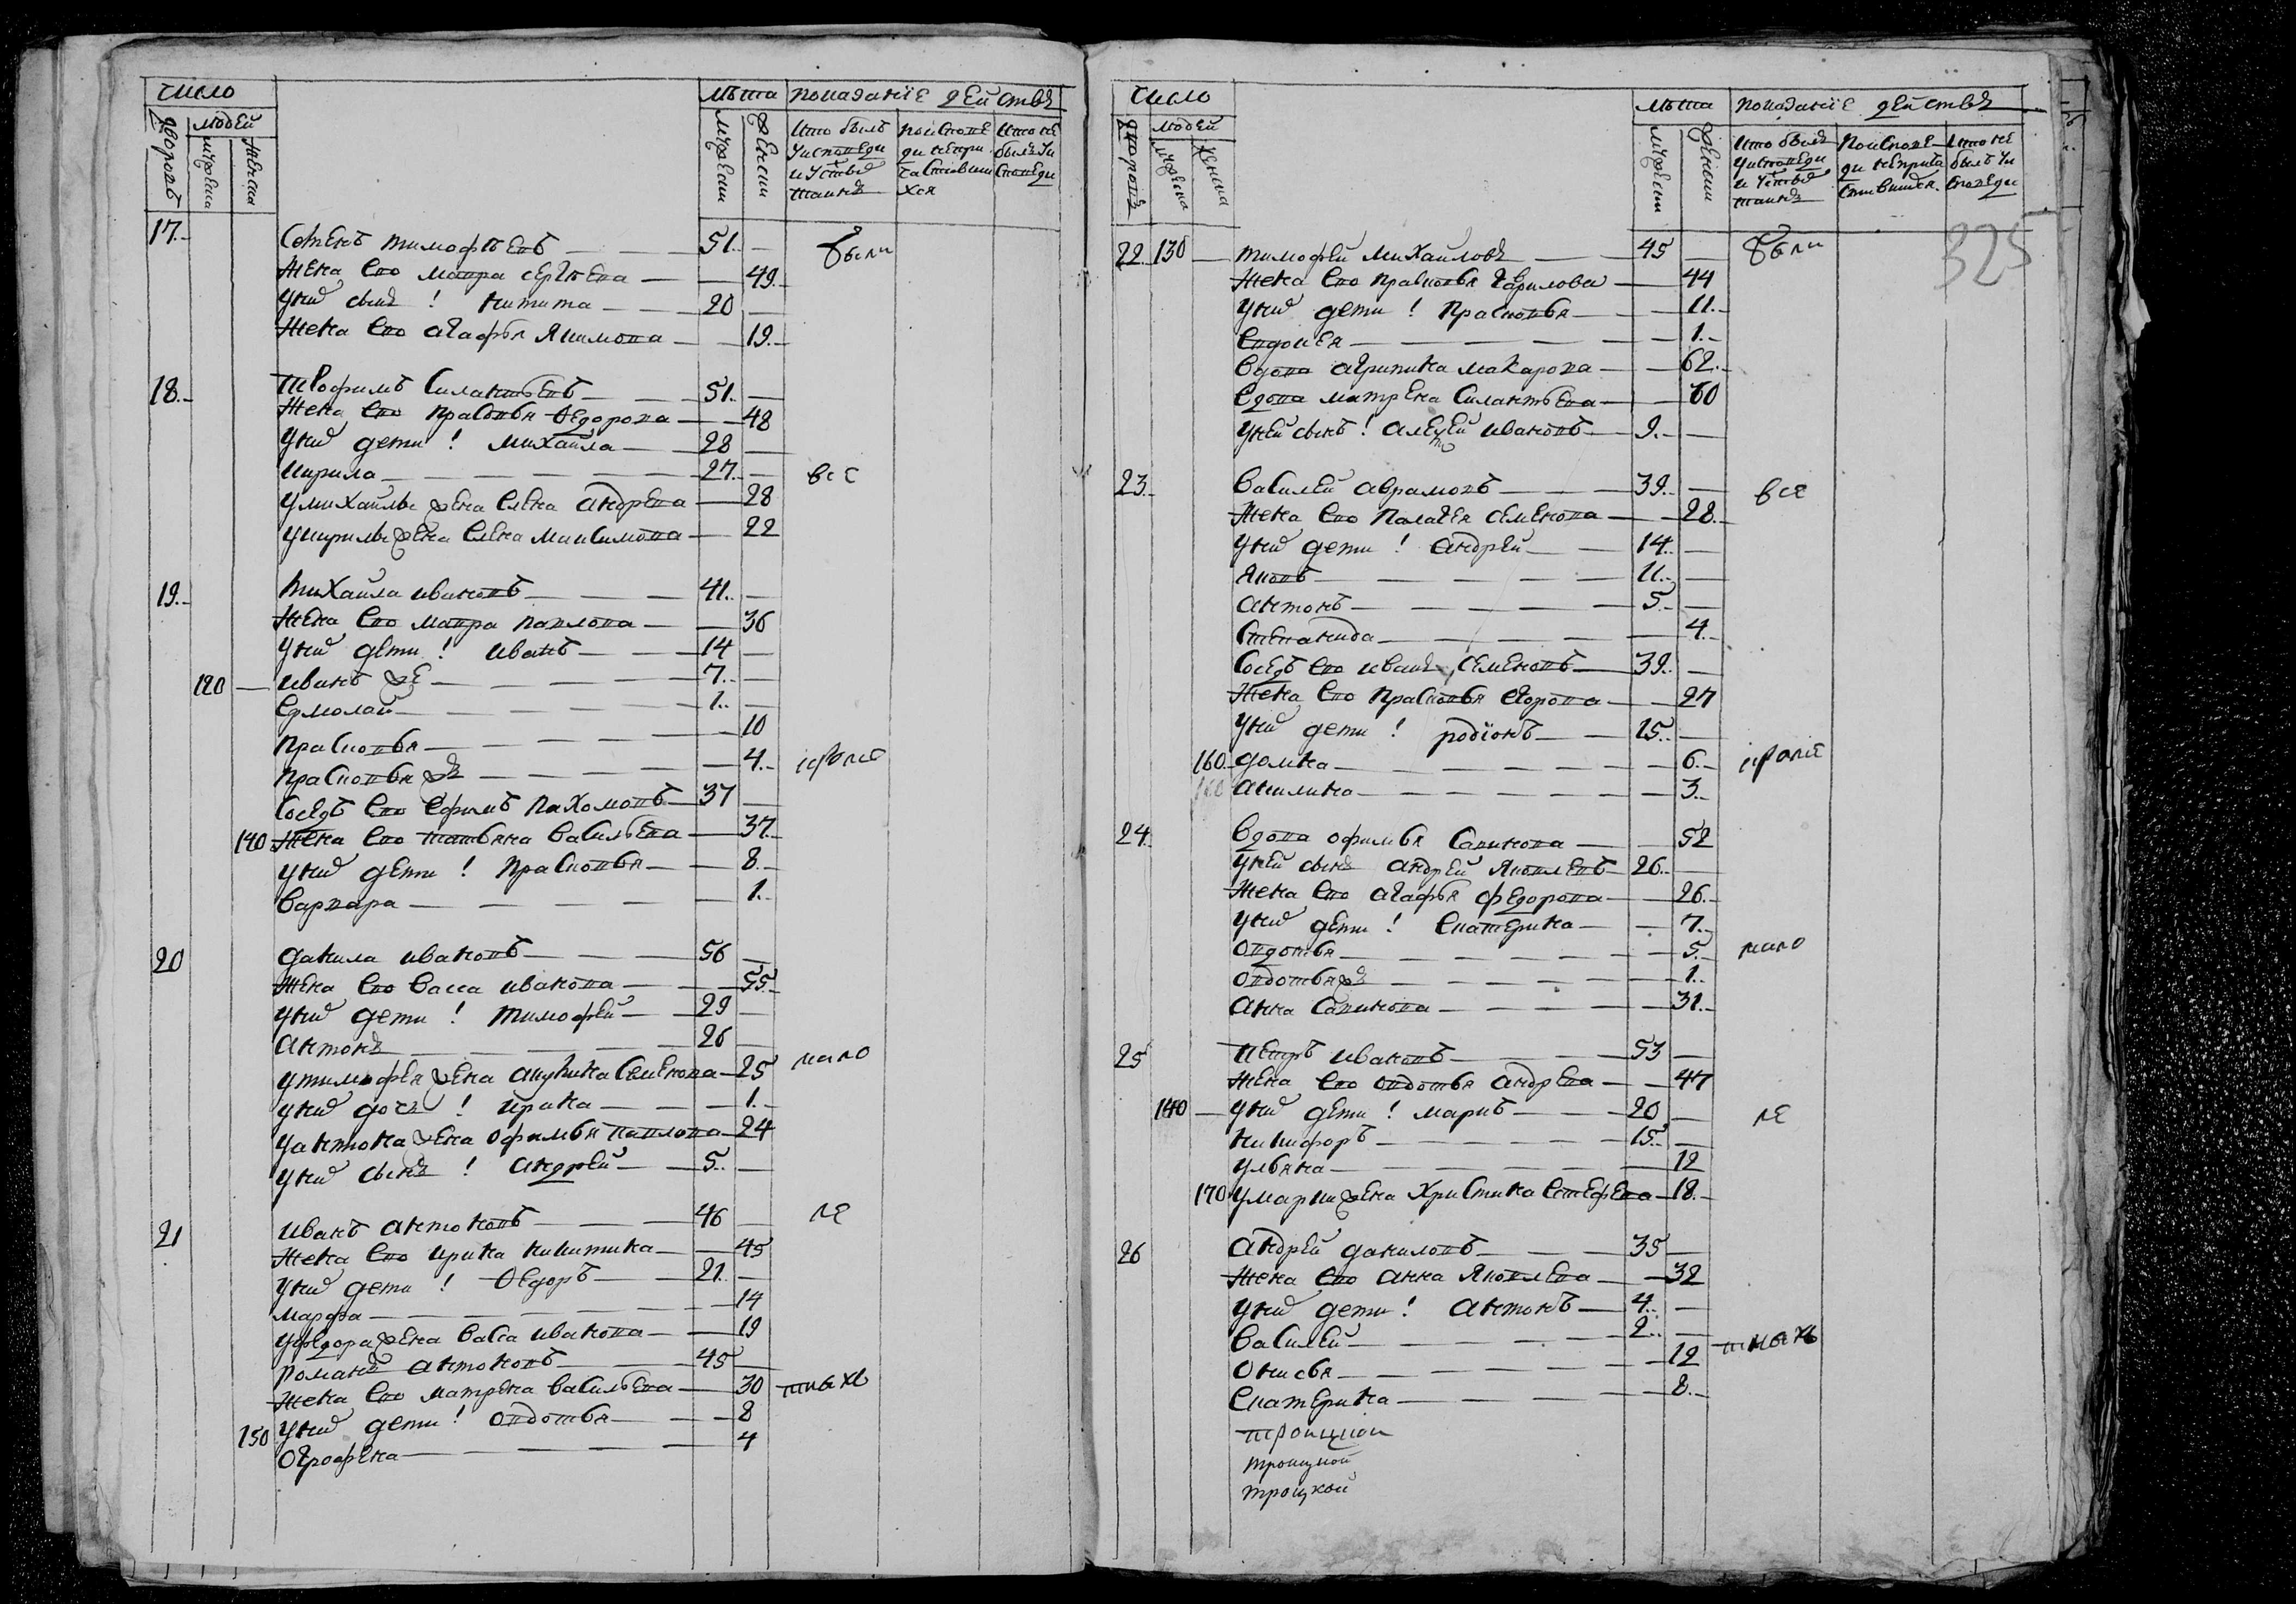 число
лѣта показанїе действъ
дворовъ
людей
мужеска
женска
мужески
женски
Кто былъ у исповеди и у святыхъ таинъ
По исповеди не причастившихся
Кто не былъ у исповеди
17. Семенъ тимофѣевъ 51. были
Жена Ево мавра сергѣева 49.
У нихъ сынъ ! Никита 20
Жена Ево агафья Якимова 19.
18. Трофимъ Силантьевъ 51.
Жена Ево прасковья Ѳедорова 48
У нихъ дети ! Михаила 28
Кирила 27. все
У михаилы жена Елена андреева 28
У кирилы жена Елена Максимова 22
19. Михаила ивановъ 41.
Жена Ево мавра павлова 36
У нихъ дети ! иванъ 14
120 иванъ же 7.
Ермолай 1.
прасковья 10
прасковья жъ 4.
Соседъ Ево Ефимъ пахомовъ 37
140 Жена Ево татьяна васильева 37.
У нихъ дети ! прасковья 8.
варвара 1.
20 данила ивановъ 56
Жена Ево васса иванова 55.
У нихъ дети ! тимофей 29
антонъ 26
У тимофея жена акулина Семенова 25 мало
У нихъ дочь ! ирина 1.
У антона жена офимья павлова 24
У нихъ сынъ ! андрей 5.
21 иванъ антоновъ 46 ле
Жена Ево ирина никитина 45
У нихъ дети ! Ѳедоръ 21.
марфа 14
У федора жена васса иванова 19
романъ антоновъ 45
Жена Ево матрена васильева 30 тныхъ
150 У нихъ дети ! овдотья 8
огрофена 4
число
лѣта показанїе действъ
дворовъ
людей
мужеска
женска
мужески
женски
Кто былъ у исповеди и у святыхъ таинъ
По исповеди не причастившихся
Кто не былъ у исповеди
325
22. 130 тимофей михайловъ 45 были
Жена Ево прасковья гаврилова 44
У нихъ дети ! прасковья 11.
Евдокея 1.
вдова агрипина макарова 62.
вдова матрена Силантьева 60
У ней сынъ ! алексей ивановъ 9.
23. василей аврамовъ 39. все
Жена Ево палагея семенова 28.
У нихъ дети ! андрей 14.
яковъ 11.
антонъ 5.
Степанида 4.
Соседъ Ево иванъ семеновъ 39.
Жена Ево прасковья егорова 27
У нихъ дети ! родїонъ 15.
160. домна 6.
160 акилина 3.
24. вдова офимья Савинова 52
У ней сынъ андрей яковлевъ 26.
Жена Ево агафья федорова 26.
У нихъ дети ! Екатерина 7.
овдотья 5. мало
овдотья жъ 1.
анна Савинова 31.
25 петръ ивановъ 53
Жена Ево овдотья андреева 47
140 У нихъ дети ! маркъ 20 ле
никифоръ 15.
ульяна 12
170 У марки жена христина Стефева 18.
26 андрей даниловъ 35
Жена Ево анна яковлева 32
У нихъ дети ! антонъ 4.
василей 2. тныхъ
онисья 12
Екатерина 8.
троицкой
троицкой
троицкой